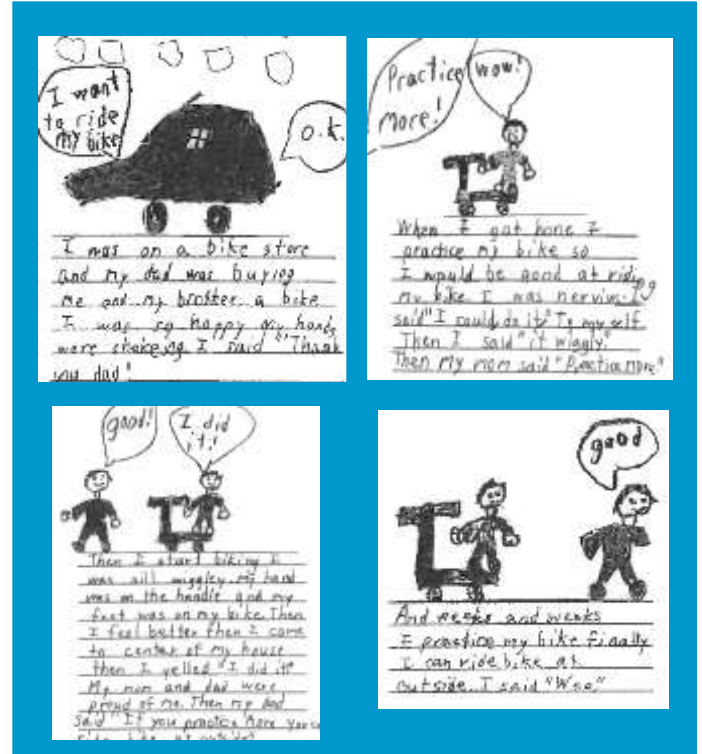 I want
to ride
my bike
o.k.
I was on a bike store
and my dad was buying
me and my brother a bike
I was so happy my hands
were shakeing I said "Thank
you dad!
Practice
More!
wow!
When I got home I
practice my bike so
I would be good at riding
my bike I was nervius I
said "I could do it" To my self
Then I said "it wiggly."
Then My mom said "Practice More."
good!
I did
it!
Then I start biking I
was all wiggley. my hand
was on the handle and my
feet was on my bike. Then
I feel better then I came
to center of my house
then I yelled "I did it"
My mom and dad were
proud of me. Then my dad
said "If you practice More you can
ride bike at outside"
good
And weeks and weaks
I practice my bike finally
I can ride bike at
outside. I said "Woo."